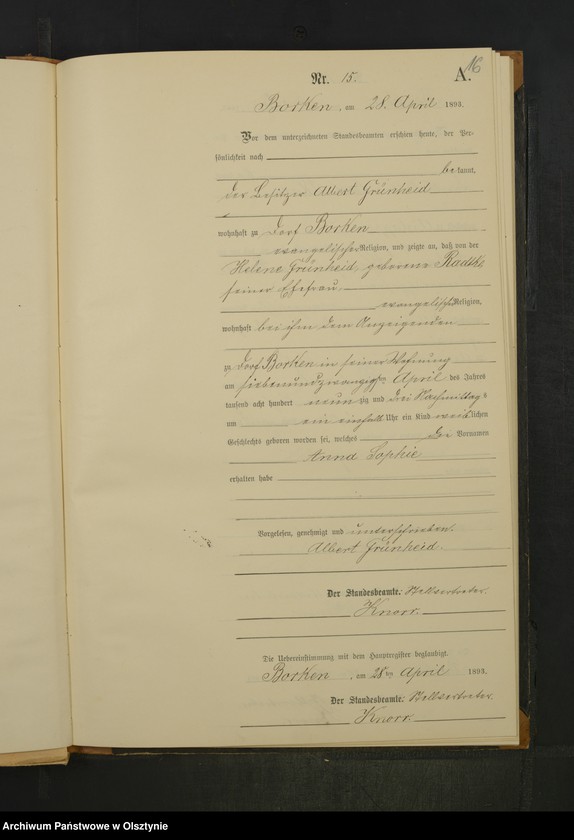 16
Nr. 15. A.
Borken, am 28. April 1893.
Vor dem unterzeichneten Standesbeamten erschien heute, der Per-
sönlichkeit nach
be-kannt,
der Besitzer Albert Grünheid
wohnhaft zu Dorf Borken
evangelischer Religion, und zeigte an, daß von der
Helene Grünheid geborene Radtke
seiner Ehefrau,
evangelischer Religion,
wohnhaft bei ihm dem Anzeigenden
zu Dorf Borken in seiner Wohnung
am siebenundzwanzigsten April des Jahres
tausend acht hundert neunzig und drei Nachmittags
um ein einhalb Uhr ein Kind weiblichen
Geschlechts geboren worden sei, welches die Vornamen
Anna Sophie
erhalten habe
Vorgelesen, genehmigt und unterschrieben.
Albert Grünheid.
Der Standesbeamte. Stellvertreter.
Knorr.
Die Uebereinstimmung mit dem Hauptregister beglaubigt.
Borken, am 28ten April 1893.
Der Standesbeamte. Stellvertreter.
Knorr.
Archiwum Państwowe w Olsztynie